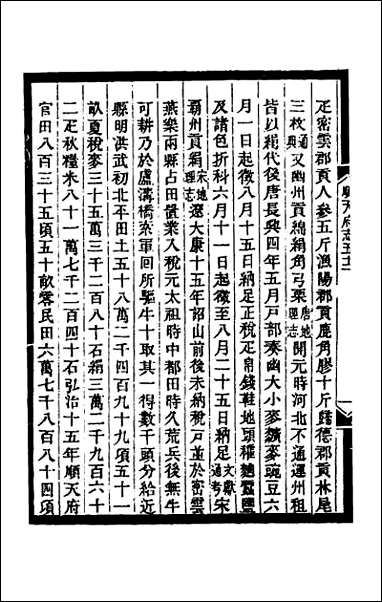 疋密雲郡貢人參五斤漁陽郡貢鹿角膠十斤歸德郡貢林尾
三枚通典又幽州貢綿絹角弓栗唐地理志開元時河北不通運州租
皆以絹代後唐長興四年五月戸部奏幽大小麥䵃麥豌豆六
月一日起徵八月十五日納足正稅疋帛錢鞋地頭榷麴蠶鹽
及諸色折科六月十一日起徵至八月二十五日納足文獻通考宋
霸州貢絹宋地理志遼大康十五年詔山前後未納稅戸並於密雲
燕樂兩縣占田置業入稅元太祖時中都田時久荒兵後無牛
可耕乃於盧溝橋索軍回所驅牛十取其一得數千頭分給近
縣明洪武初北平田土五十八萬二千四百九十九項五十一
畝夏稅麥三十五萬三千二百八十石絹三萬二千九百六十
二疋秋糧米八十一萬七千二百四十石弘治十五年順天府
官田八百三十五項五十畝零民田六萬七千八百八十四項